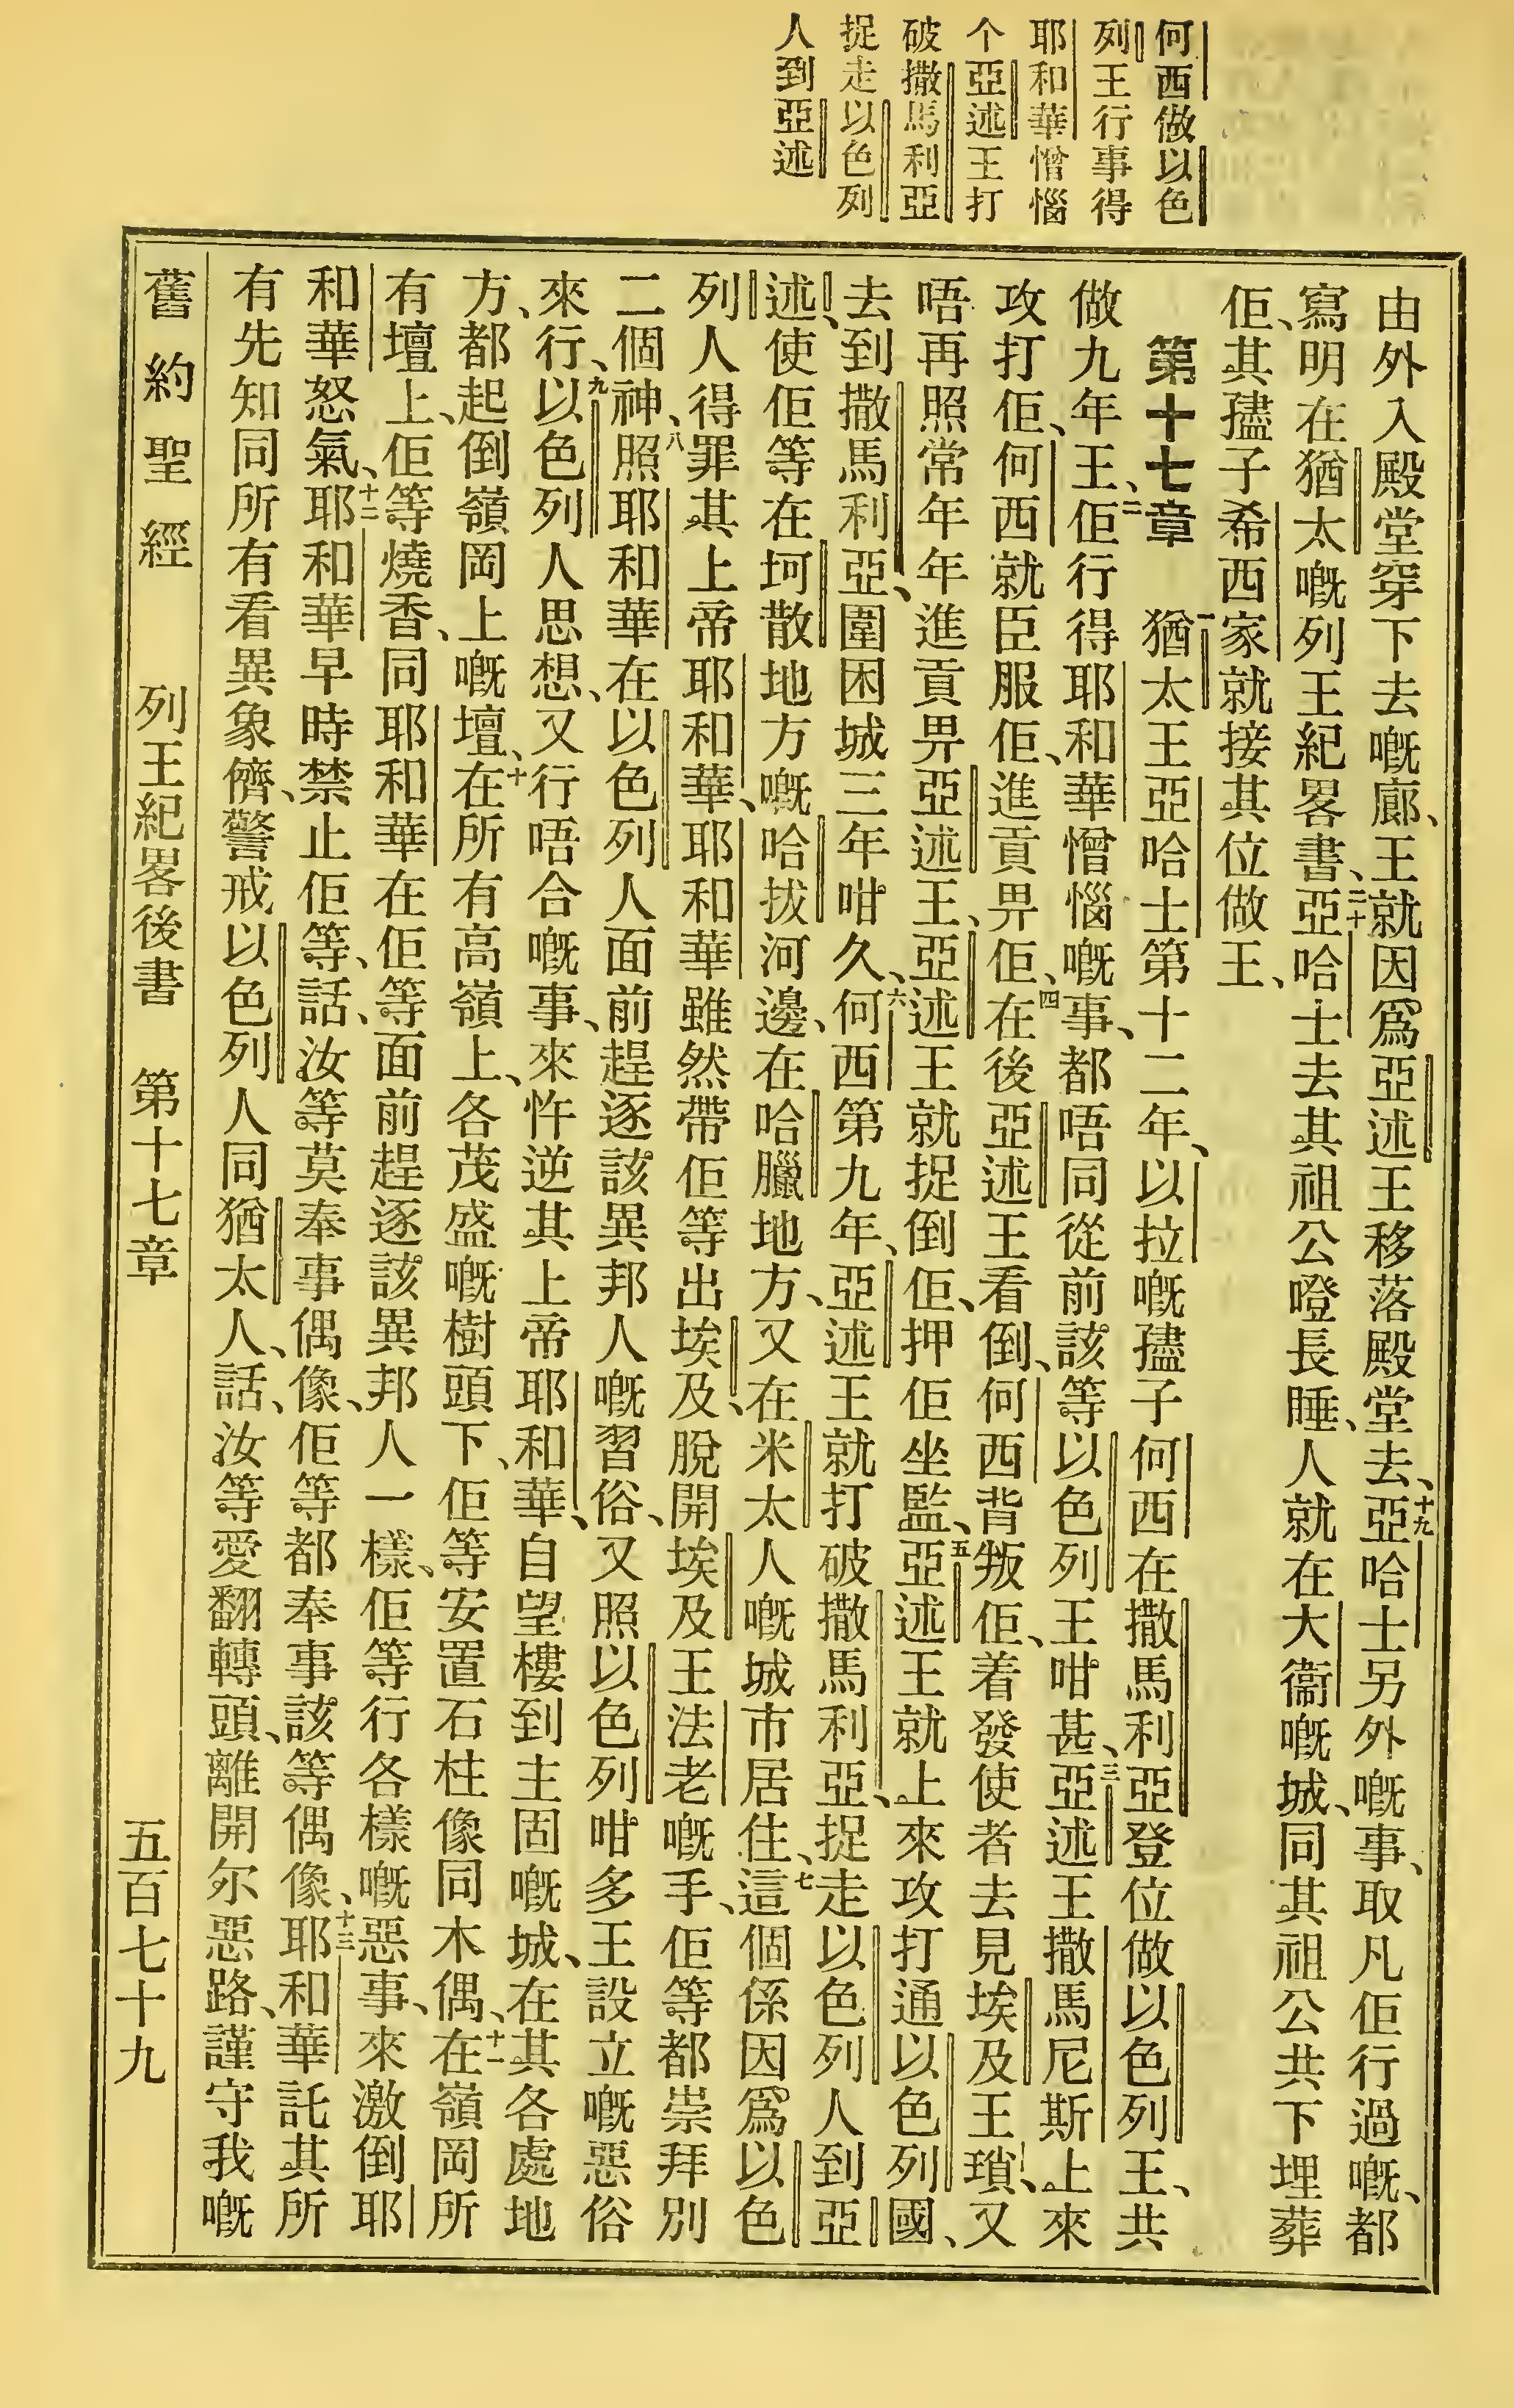 何西做以色
列王行事得
耶和華憎惱
个亞述王打
破撒馬利亞
捉走以色列
人到亞述
由外入殿堂穿下去嘅廊、王就因爲亞述王移落殿堂去、十九亞哈士另外嘅事、取凡佢行過嘅、都
寫明在猶太嘅列王紀畧書、二十亞哈士去其祖公噔長睡、人就在大衞嘅城、同其祖公共下埋葬
佢、其孻子希西家就接其位做王、
第十七章 一猶太王亞哈士第十二年、以拉嘅孻子何西在撒馬利亞登位做以色列王、共
做九年王、二佢行得耶和華憎惱嘅事、都唔同從前該等以色列王咁甚、三亞述王撒馬尼斯上來
攻打佢、何西就臣服佢、進貢畀佢、四在後亞述王看倒、何西背叛佢、着發使者去見埃及王瑣、又
唔再照常年年進貢畀亞述王、亞述王就捉倒佢、押佢坐監、五亞述王就上來攻打通以色列國、
去到撒馬利亞、圍困城三年咁久、六何西第九年、亞述王就打破撒馬利亞、捉走以色列人到亞
述、使佢等在坷散地方嘅哈拔河邊、在哈臘地方、又在米太人嘅城市居住、七這個係因爲以色
列人得罪其上帝耶和華、耶和華雖然帶佢等出埃及、脫開埃及王法老嘅手、佢等都崇拜別
二個神、八照耶和華在以色列人面前趕逐該異邦人嘅習俗、又照以色列咁多王設立嘅惡俗
來行、九以色列人思想、又行唔合嘅事、來忤逆其上帝耶和華、自望樓到主固嘅城、在其各處地
方、都起倒嶺岡上嘅壇、十在所有高嶺上、各茂盛嘅樹頭下、佢等安置石柱像同木偶、十一在嶺岡所
有壇上、佢等燒香、同耶和華在佢等面前趕逐該異邦人一樣、佢等行各樣嘅惡事、來激倒耶
和華怒氣、十二耶和華早時禁止佢等、話、汝等莫奉事偶像、佢等都奉事該等偶像、十三耶和華託其所
有先知同所有看異象儕、警戒以色列人同猶太人、話、汝等愛翻轉頭、離開尔惡路、謹守我嘅
舊約聖經 列王紀畧後書 第十七章 五百七十九